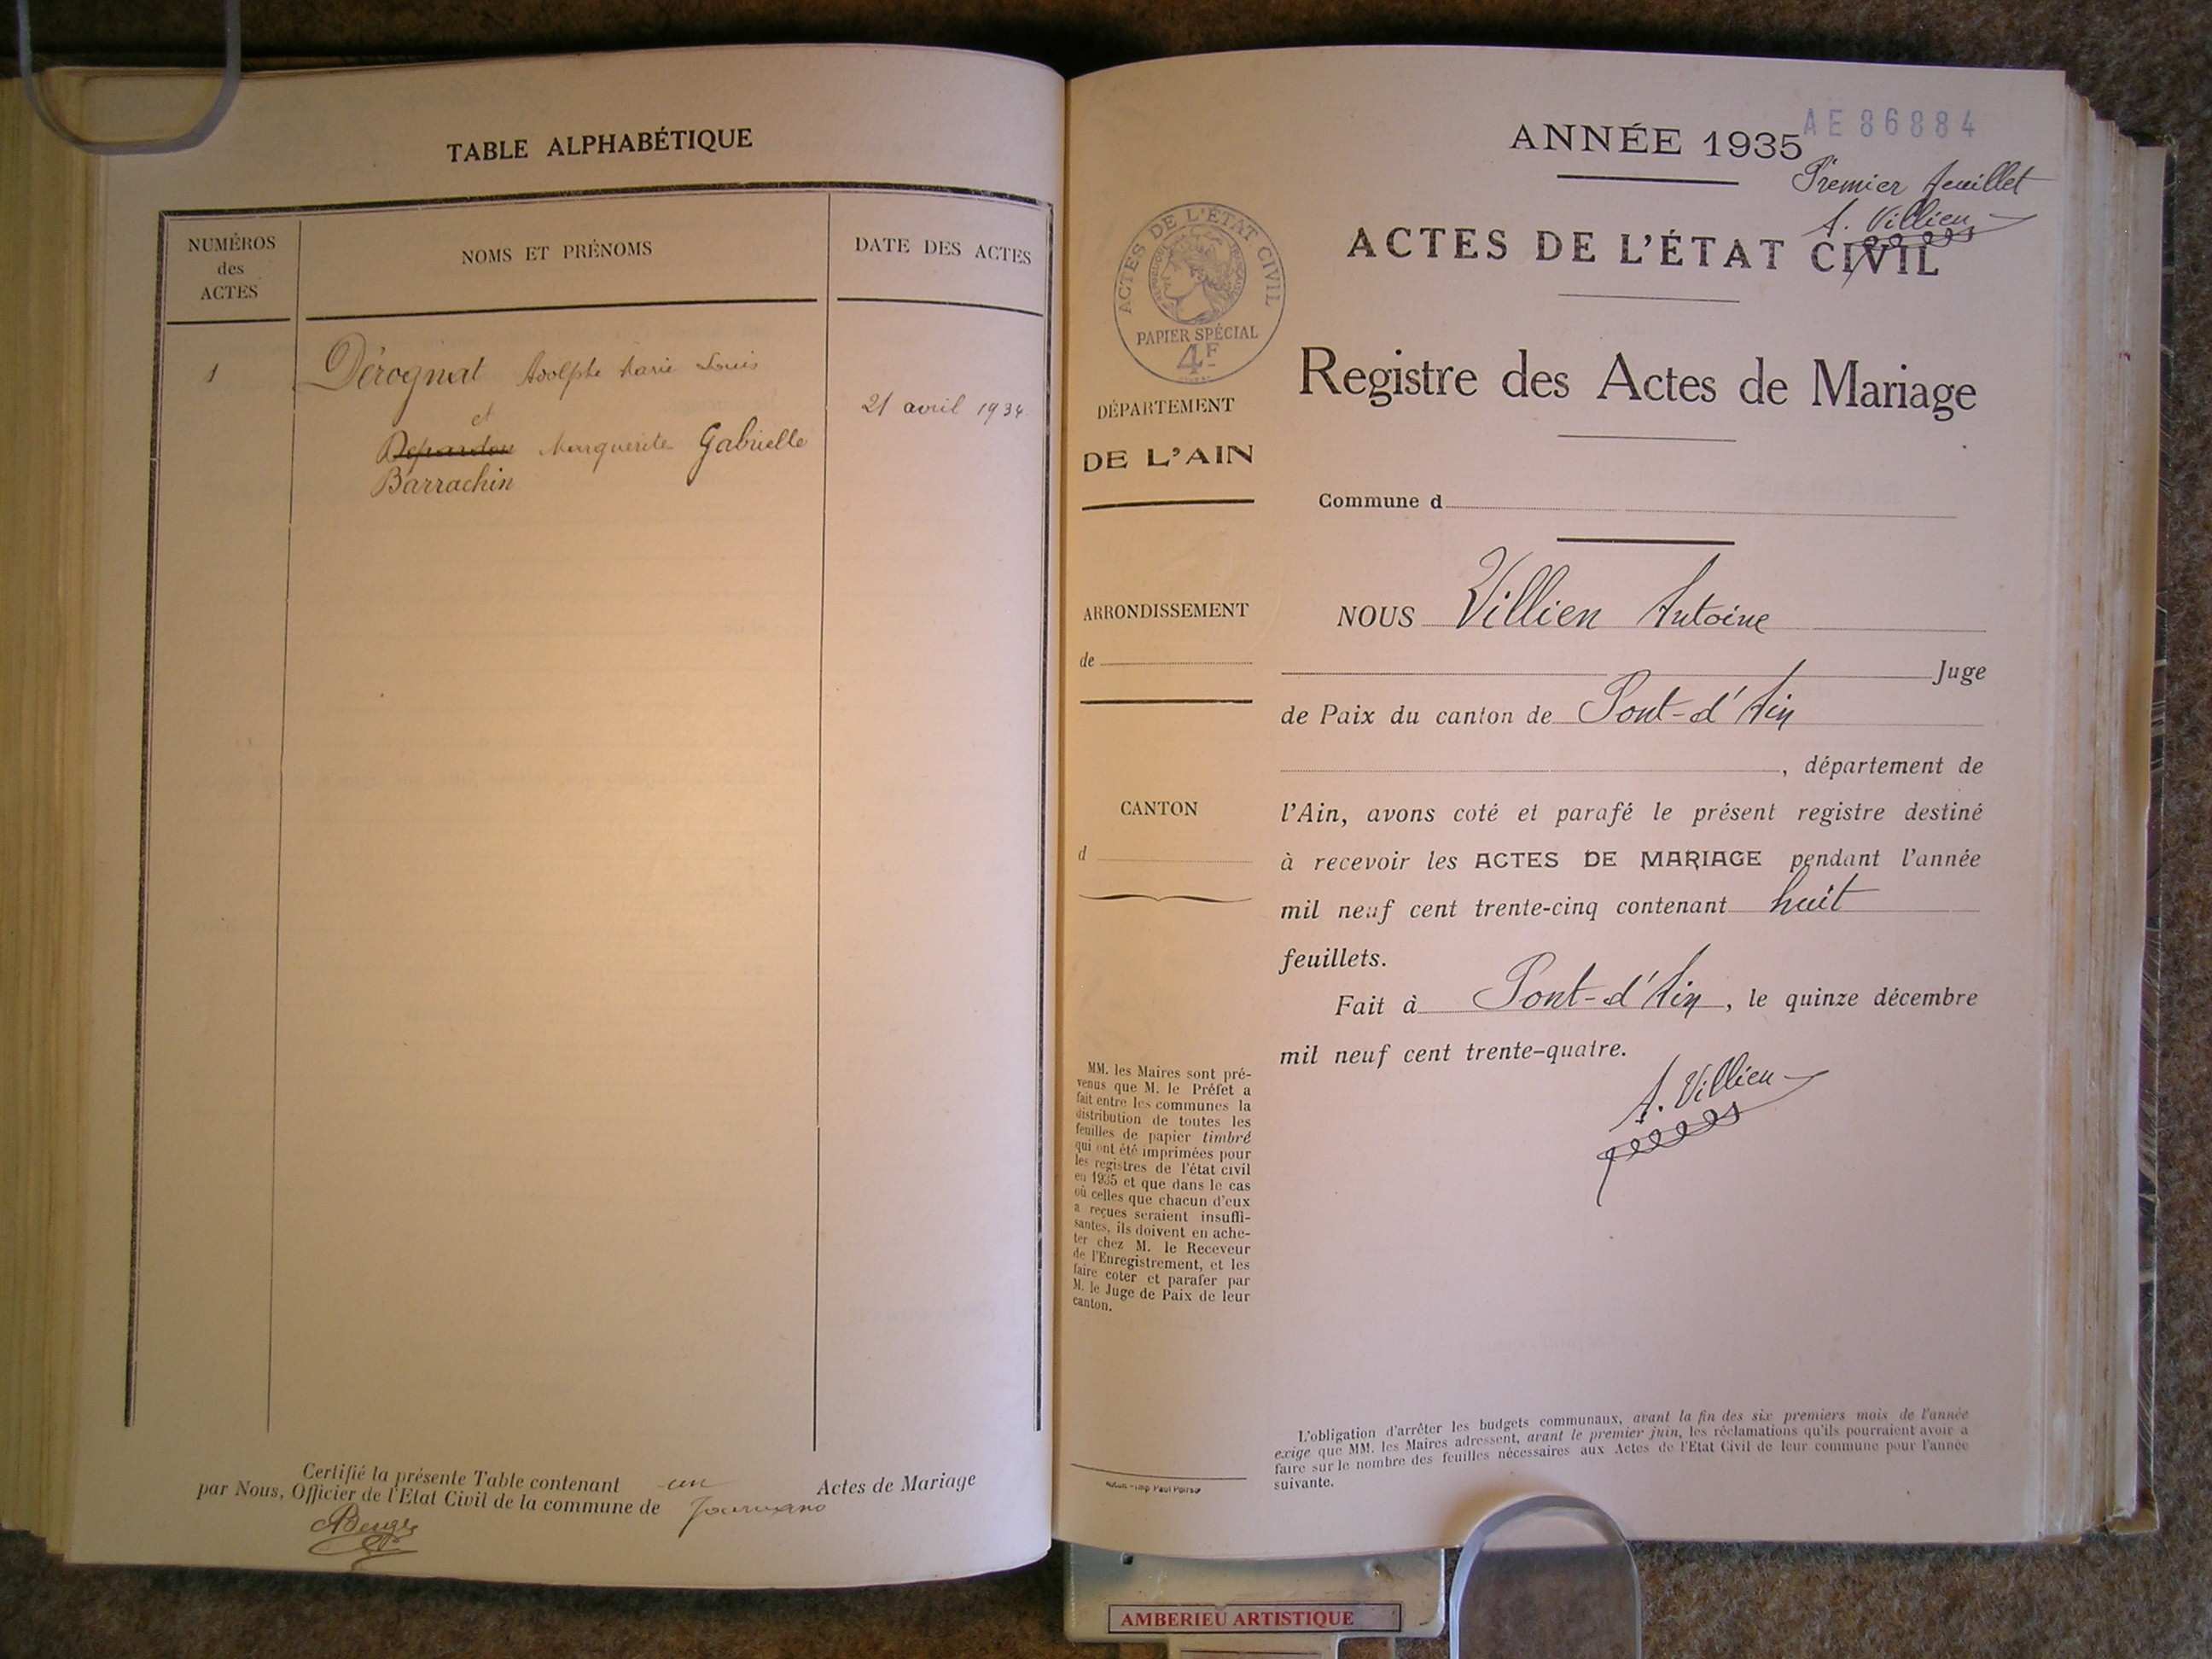 TABLE ALPHABÉTIQUE
NUMÉROS
des
ACTES
NOMS ET PRÉNOMS
DATE DES ACTES
1
Dérognat Adolphe Marie Louis
et
21 avril 1934
Depardon Marguerite Gabrielle
Barrachin
Certifié la présente Table contenant un Actes de Mariage
par Nous, Officier de l'Etat Civil de la commune de
AE 86884
ANNÉE 1935
Premier feuillet
A. Villien
ACTES DE L'ÉTAT CIVIL
ACTES DE L'ÉTAT CIVIL
PAPIER SPÉCIAL
4F
Registre des Actes de Mariage
DÉPARTEMENT
DE L'AIN
Commune d
ARRONDISSEMENT
de
NOUS Villien Antoine
Juge
de Paix du canton de Pont-d'Ain
, département de
CANTON
d
l'Ain, avons coté et parafé le présent registre destiné
à recevoir les ACTES DE MARIAGE pendant l'année
mil neuf cent trente-cinq contenant huit
feuillets.
Fait à Pont-d'Ain, le quinze décembre
mil neuf cent trente-quatre.
A. Villien
MM. les Maires sont pré-
venus que M. le Préfet a
fait entre les communes la
distribution de toutes les
feuilles de papier timbré
qui ont été imprimées pour
les registres de l'état civil
en 1935 et que dans le cas
où celles que chacun d'eux
a reçues seraient insuffi-
santes, ils doivent en ache-
ter chez M. le Receveur
de l'Enregistrement, et les
faire coter et parafer par
M. le Juge de Paix de leur
canton.
L'obligation d'arrêter les budgets communaux, avant la fin des six premiers mois de l'année
exige que MM. les Maires adressent, avant le premier juin, les réclamations qu'ils pourraient avoir à
faire sur le nombre des feuilles nécessaires aux Actes de l'Etat Civil de leur commune pour l'année
suivante.
AMBERIEU ARTISTIQUE